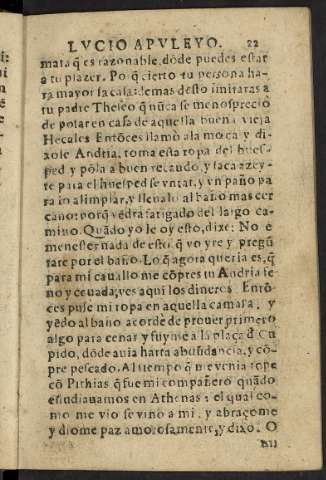 LVCIO APVLEYO. 22
mara q̃ es razonable, dõde puedes estar
a tu plazer. Po q̃ cierto tu persona ha-
ra mayor la casa: demas desto imitaras a
tu padre Theseo q̃ nũca se menospreciò
de posar en casa de aquella buena vieja
Hecales. Entõces llamò a la moça y di-
xole Andria, toma esta ropa del hues-
ped y põla a buen recaudo, y saca azey-
te para el huesped se vntar, y vn paño pa
ra lo alimpiar, y llenalo al baño mas cer
cano: porq̃ vẽdra fatigado del largo ca-
mino. Quãdo yo le oy esto, dixe: No e
menester nada de esto, q̃ yo yre y pregũ
tare por el baño. Lo q̃ agora queria es, q̃
para mi cauallo me cõpres tu Andria fe
no y ceuada, ves aqui los dineros. Entõ-
ces puse mi ropa en aquella camara, y
yẽdo al baño acorde de proueer primero
algo para cenar y fuyme a la plaça d̃ Cu
pido, dõde auia harta abundancia, y cõ-
pre pescado. Al tiempo q̃ me venia tope
cõ Pithias q̃ fue mi compañero quãdo
estudiauamos en Athenas: el qual co-
mo me vio se vino a mi, y abraçome
y diome paz amorosamente, y dixo. O